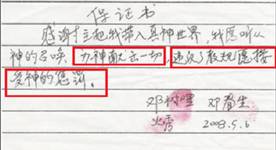 保证书
感谢主把我带入真神世界，我愿听从
神的召唤，为神献出一切，违反了教规愿接
受神的惩罚。
邓
2008.5.6